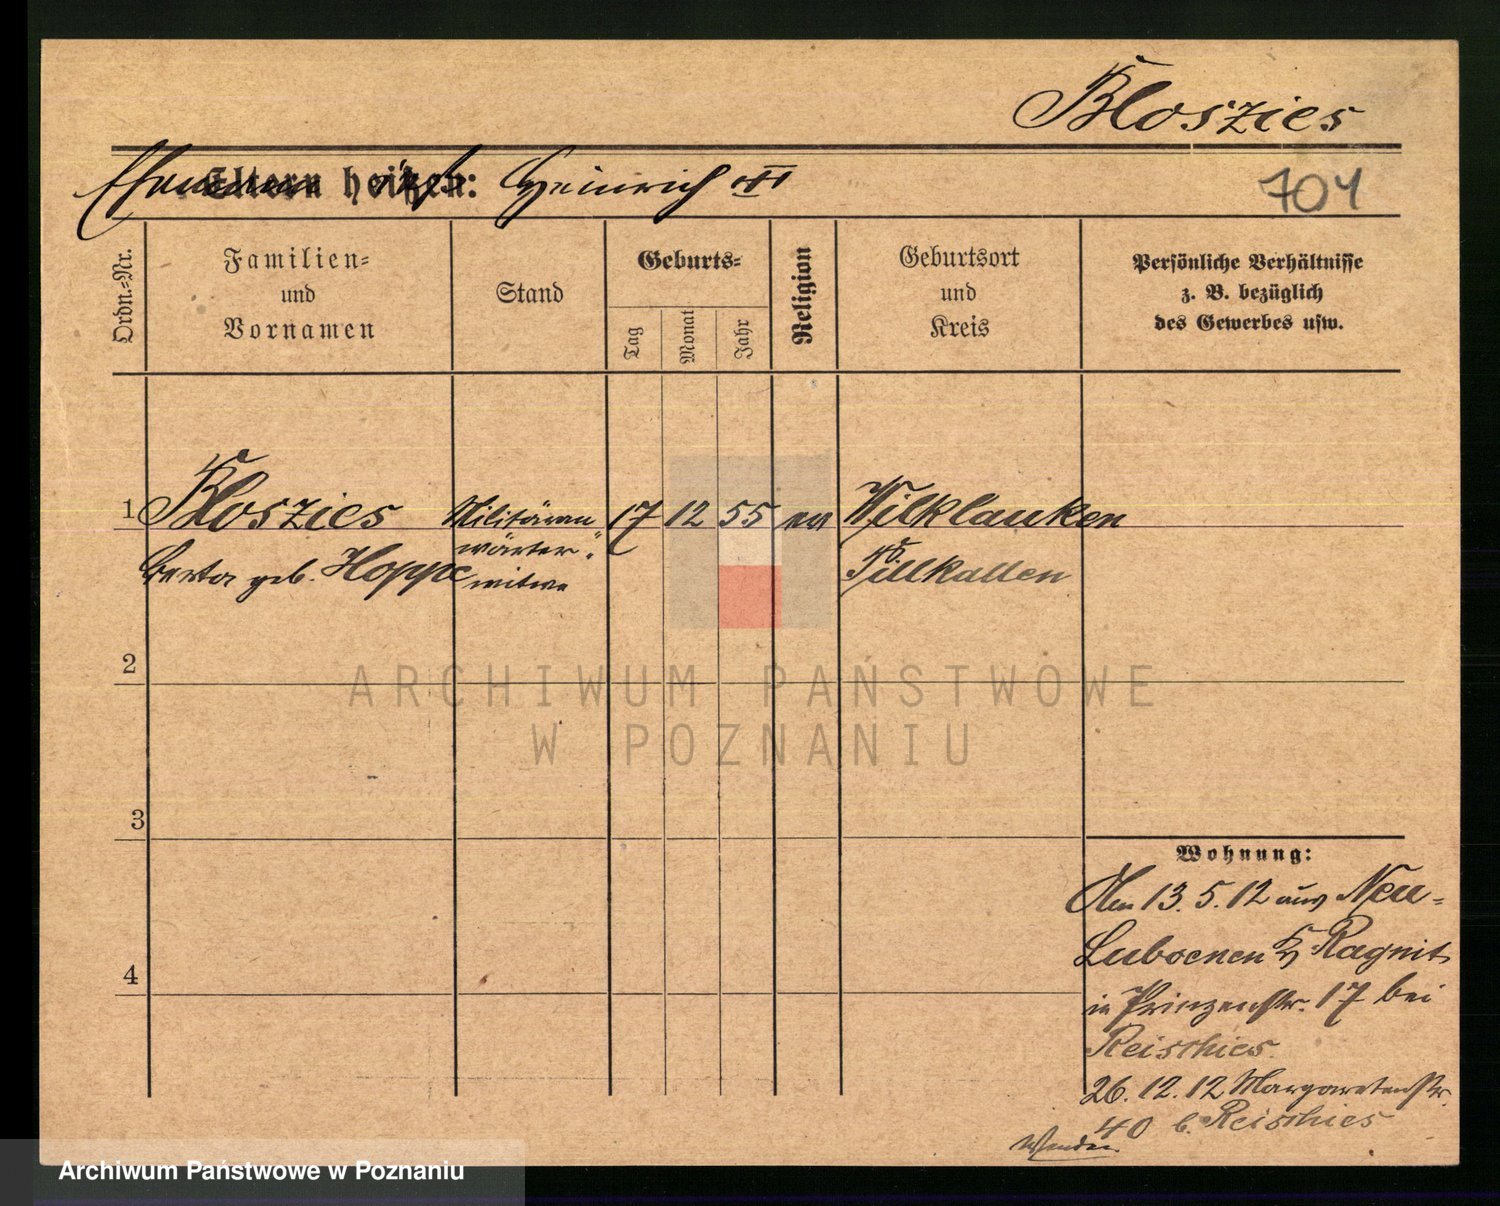 Bloszies
Eltern heißen: Ehemann hieß Heinrich III
704
Ordn.-Nr.
Familien-
und
Vornamen
Stand
Geburts-
Tag
Monat
Jahr
Religion
Geburtsort
und
Kreis
Persönliche Verhältnisse
z. B. bezüglich
des Gewerbes usw.
1 Bloszies Militäran 17 12 55 ev Wilklauken
wärter-
Berta geb. Hoppe witwe Pillkallen
2
3
4
Wohnung:
Am 13. 5. 12 aus Neu-
Luboenen K Ragnit
in Prinzenstr. 17 bei
Reischies.
26. 12. 12 Margaretenstr.
40 b. Reischies
Wenden.
ARCHIWUM PAŃSTWOWE
W POZNANIU
Archiwum Państwowe w Poznaniu